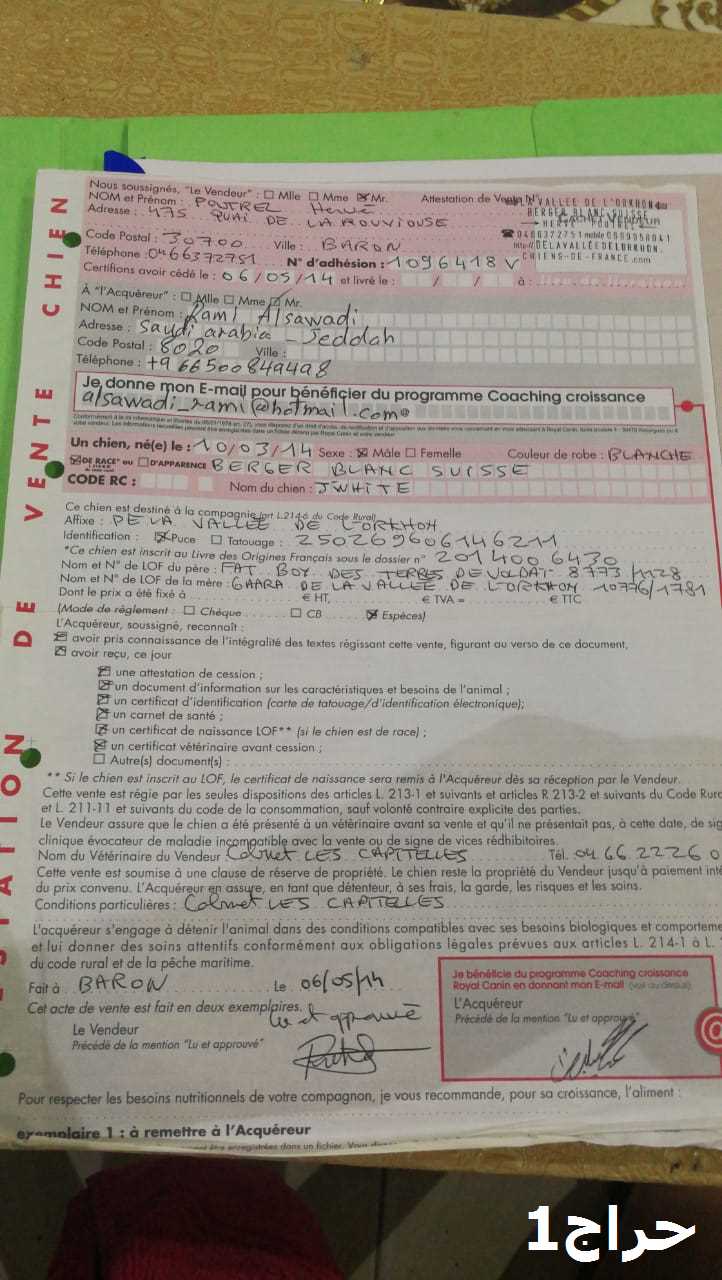 ATTESTATION DE VENTE CHIEN
Nous soussignés, "Le Vendeur" : Mlle Mme Mr. Attestation de Vente N°
NOM et Prénom : POUTREL Hervé
Adresse : 475 QUAI DE LA ROUVIOUSE
DE LA VALLEE DE L'ORKHON
BERGER BLANC SUISSE
HERVE POUTREL
0466372751 mobile
http://DELAVALLEEDELORKHON.
CHIENS-DE-FRANCE.com
Code Postal : 30700 Ville : BARON
Téléphone : 0466372751 N° d'adhésion : 1096418 V
Certifions avoir cédé le : 06/05/14 et livré le : / / à :
À "l'Acquéreur" : Mlle Mme Mr.
NOM et Prénom : Rami Alsawadi
Adresse : Saudi arabia - Jeddah
Code Postal : 8020 Ville :
Téléphone : +966500849498
Je donne mon E-mail pour bénéficier du programme Coaching croissance
alsawadi_rami@hotmail.com @
Un chien, né(e) le : 10/03/14 Sexe : Mâle Femelle Couleur de robe : BLANCHE
DE RACE* ou D'APPARENCE BERGER BLANC SUISSE
CODE RC : Nom du chien : JWHITE
Ce chien est destiné à la compagnie (art L.214-6 du Code Rural)
Affixe : DE LA VALLEE DE L'ORKHON
Identification : Puce Tatouage : 250269606146211
*Ce chien est inscrit au Livre des Origines Français sous le dossier n° 2014006430
Nom et N° de LOF du père : FAT BOY DES TERRES DE VOLDAT 8773/1128
Nom et N° de LOF de la mère : GAARA DE LA VALLEE DE L'ORKHON 10776/1781
Dont le prix a été fixé à € HT, € TVA = € TTC
(Mode de règlement : Chèque CB Espèces)
L'Acquéreur, soussigné, reconnaît :
avoir pris connaissance de l'intégralité des textes régissant cette vente, figurant au verso de ce document,
avoir reçu, ce jour
une attestation de cession ;
un document d'information sur les caractéristiques et besoins de l'animal ;
un certificat d'identification (carte de tatouage/d'identification électronique);
un carnet de santé ;
un certificat de naissance LOF** (si le chien est de race) ;
un certificat vétérinaire avant cession ;
Autre(s) document(s) :
** Si le chien est inscrit au LOF, le certificat de naissance sera remis à l'Acquéreur dès sa réception par le Vendeur.
Cette vente est régie par les seules dispositions des articles L. 213-1 et suivants et articles R 213-2 et suivants du Code Rura
et L. 211-11 et suivants du code de la consommation, sauf volonté contraire explicite des parties.
Le Vendeur assure que le chien a été présenté à un vétérinaire avant sa vente et qu'il ne présentait pas, à cette date, de sig
clinique évocateur de maladie incompatible avec la vente ou de signe de vices rédhibitoires.
Nom du Vétérinaire du Vendeur Cabinet LES CAPITELLES Tél. 04 66 2226 0
Cette vente est soumise à une clause de réserve de propriété. Le chien reste la propriété du Vendeur jusqu'à paiement inté
du prix convenu. L'Acquéreur en assure, en tant que détenteur, à ses frais, la garde, les risques et les soins.
Conditions particulières : Cabinet LES CAPITELLES
L'acquéreur s'engage à détenir l'animal dans des conditions compatibles avec ses besoins biologiques et comporteme
et lui donner des soins attentifs conformément aux obligations légales prévues aux articles L. 214-1 à L.
du code rural et de la pêche maritime.
Fait à : BARON Le : 06/05/14
Cet acte de vente est fait en deux exemplaires.
Lu et approuvé
Le Vendeur
Précédé de la mention "Lu et approuvé"
Je bénéficie du programme Coaching croissance
Royal Canin en donnant mon E-mail (voir au dessus).
L'Acquéreur
Précédé de la mention "Lu et approuvé"
@
Pour respecter les besoins nutritionnels de votre compagnon, je vous recommande, pour sa croissance, l'aliment :
exemplaire 1 : à remettre à l'Acquéreur
حراج1